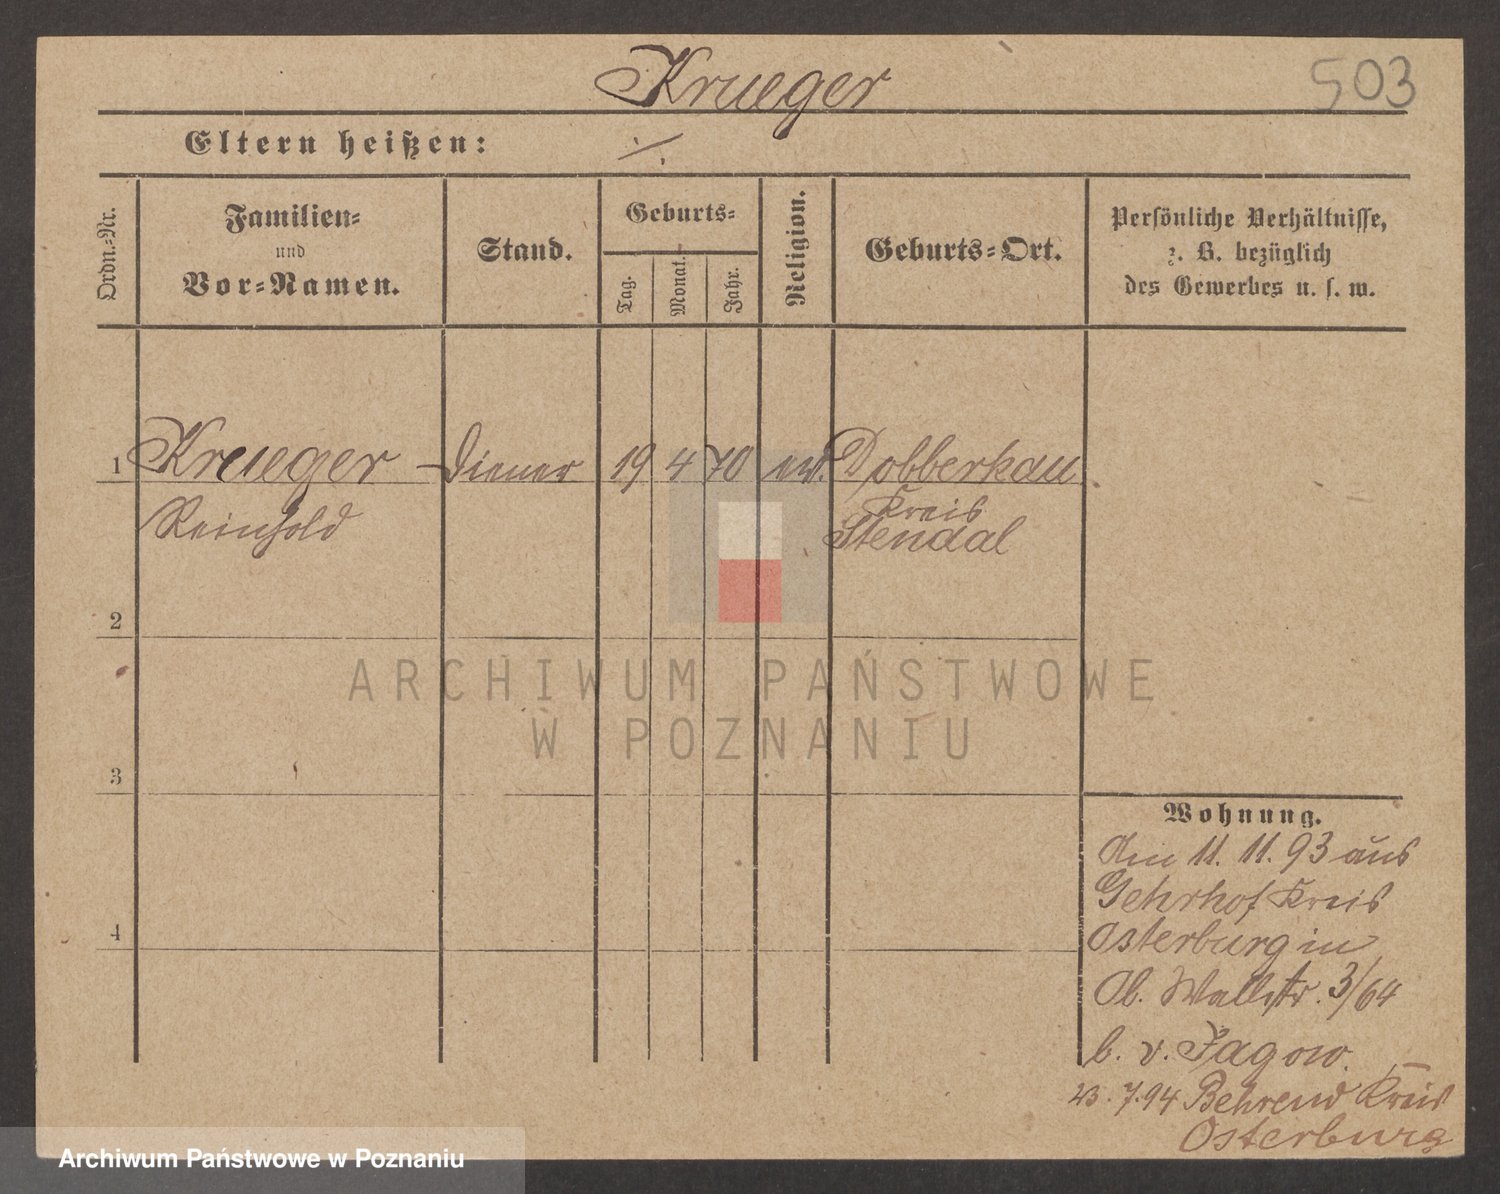 Krueger
503
Eltern heißen: ·/.
Ordn.-Nr.
Familien-
und
Vor-Namen.
Stand.
Geburts-
Tag.
Monat.
Jahr.
Religion.
Geburts-Ort.
Persönliche Verhältnisse,
z. B. bezüglich
des Gewerbes u. s. w.
1 Krueger Diener 19 4 70 ev. Dobberkau
Reinhold Kreis
Stendal
2
3
4
ARCHIWUM PAŃSTWOWE
W POZNANIU
Wohnung.
Am 11. 11. 93 aus
Gehrhof Kreis
Osterburg in
Ob. Wallstr. 3/64
b. v. Jagow.
23. 7. 94 Behrend Kreis
Osterburg
Archiwum Państwowe w Poznaniu